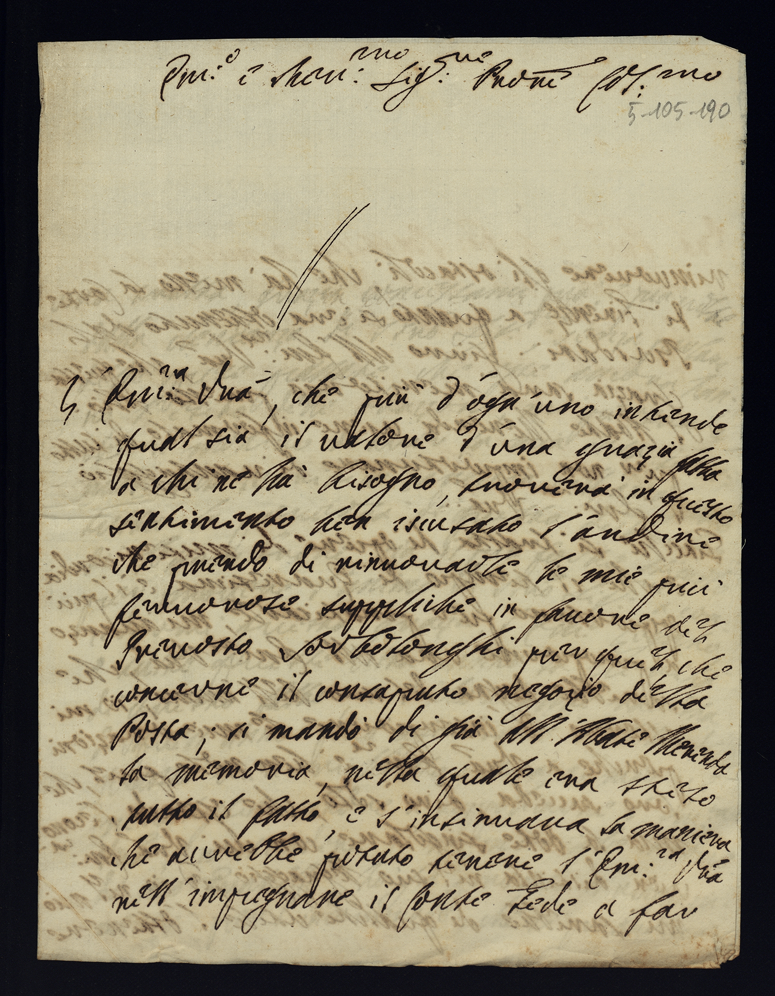 Em.o e Rev.mo Sig.re Prone Col.mo
5-105-190
L' Em.za Vra, che più d'ogn'uno intende
qual sia il valore d'una grazia fatta
a chi ne ha bisogno, troverà in questo
sentimento ben iscusato l'ardire
che prendo di rinnovarle le mie più
fervorose suppliche in favore del
Prevosto Borbolonghi per quel che
concerne il consaputo negozio della
Posta; si mandò di già all'Abate Merenda
la memoria, nella quale era steso
tutto il fatto, e s'insinuava la maniera
che avrebbe potuto tenere l'Em.za Vra
nell'impegnare il Conte Fede a far